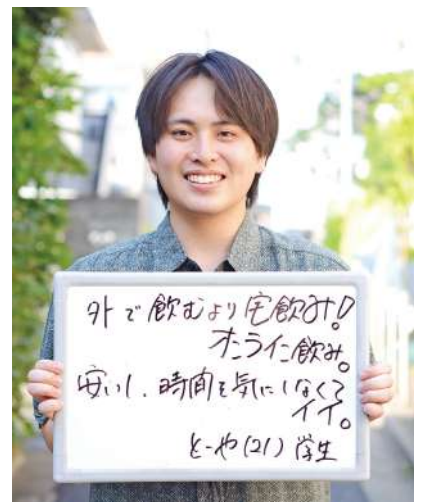 外で飲むより宅飲み!
オンライン飲み。
安いし、時間を気にしなくて
イイ。
とーや(21) 学生